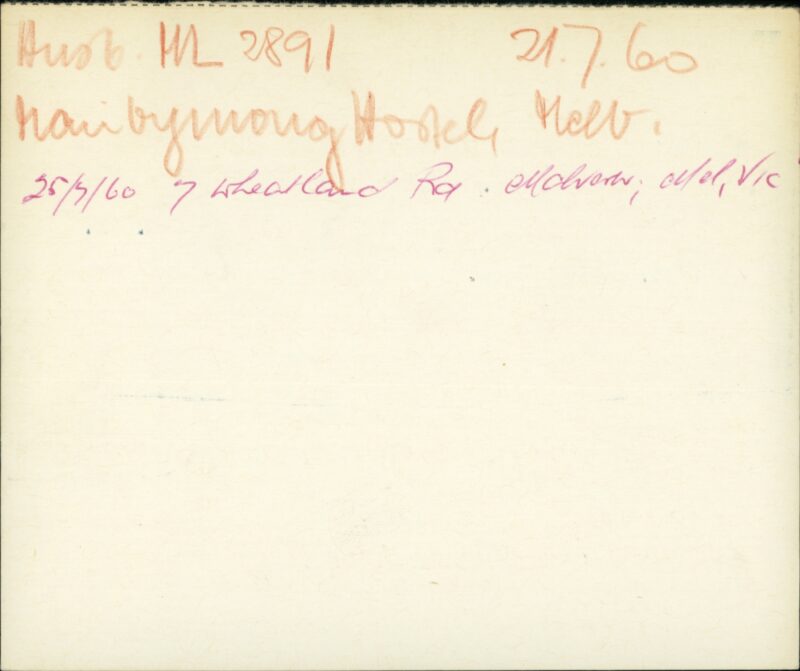 Husb. ML 2891 21.7.60
Maribyrnong Hostel, Melb.
25/7/60 7 Wheatland Rd. Malvern, Mel, Vic